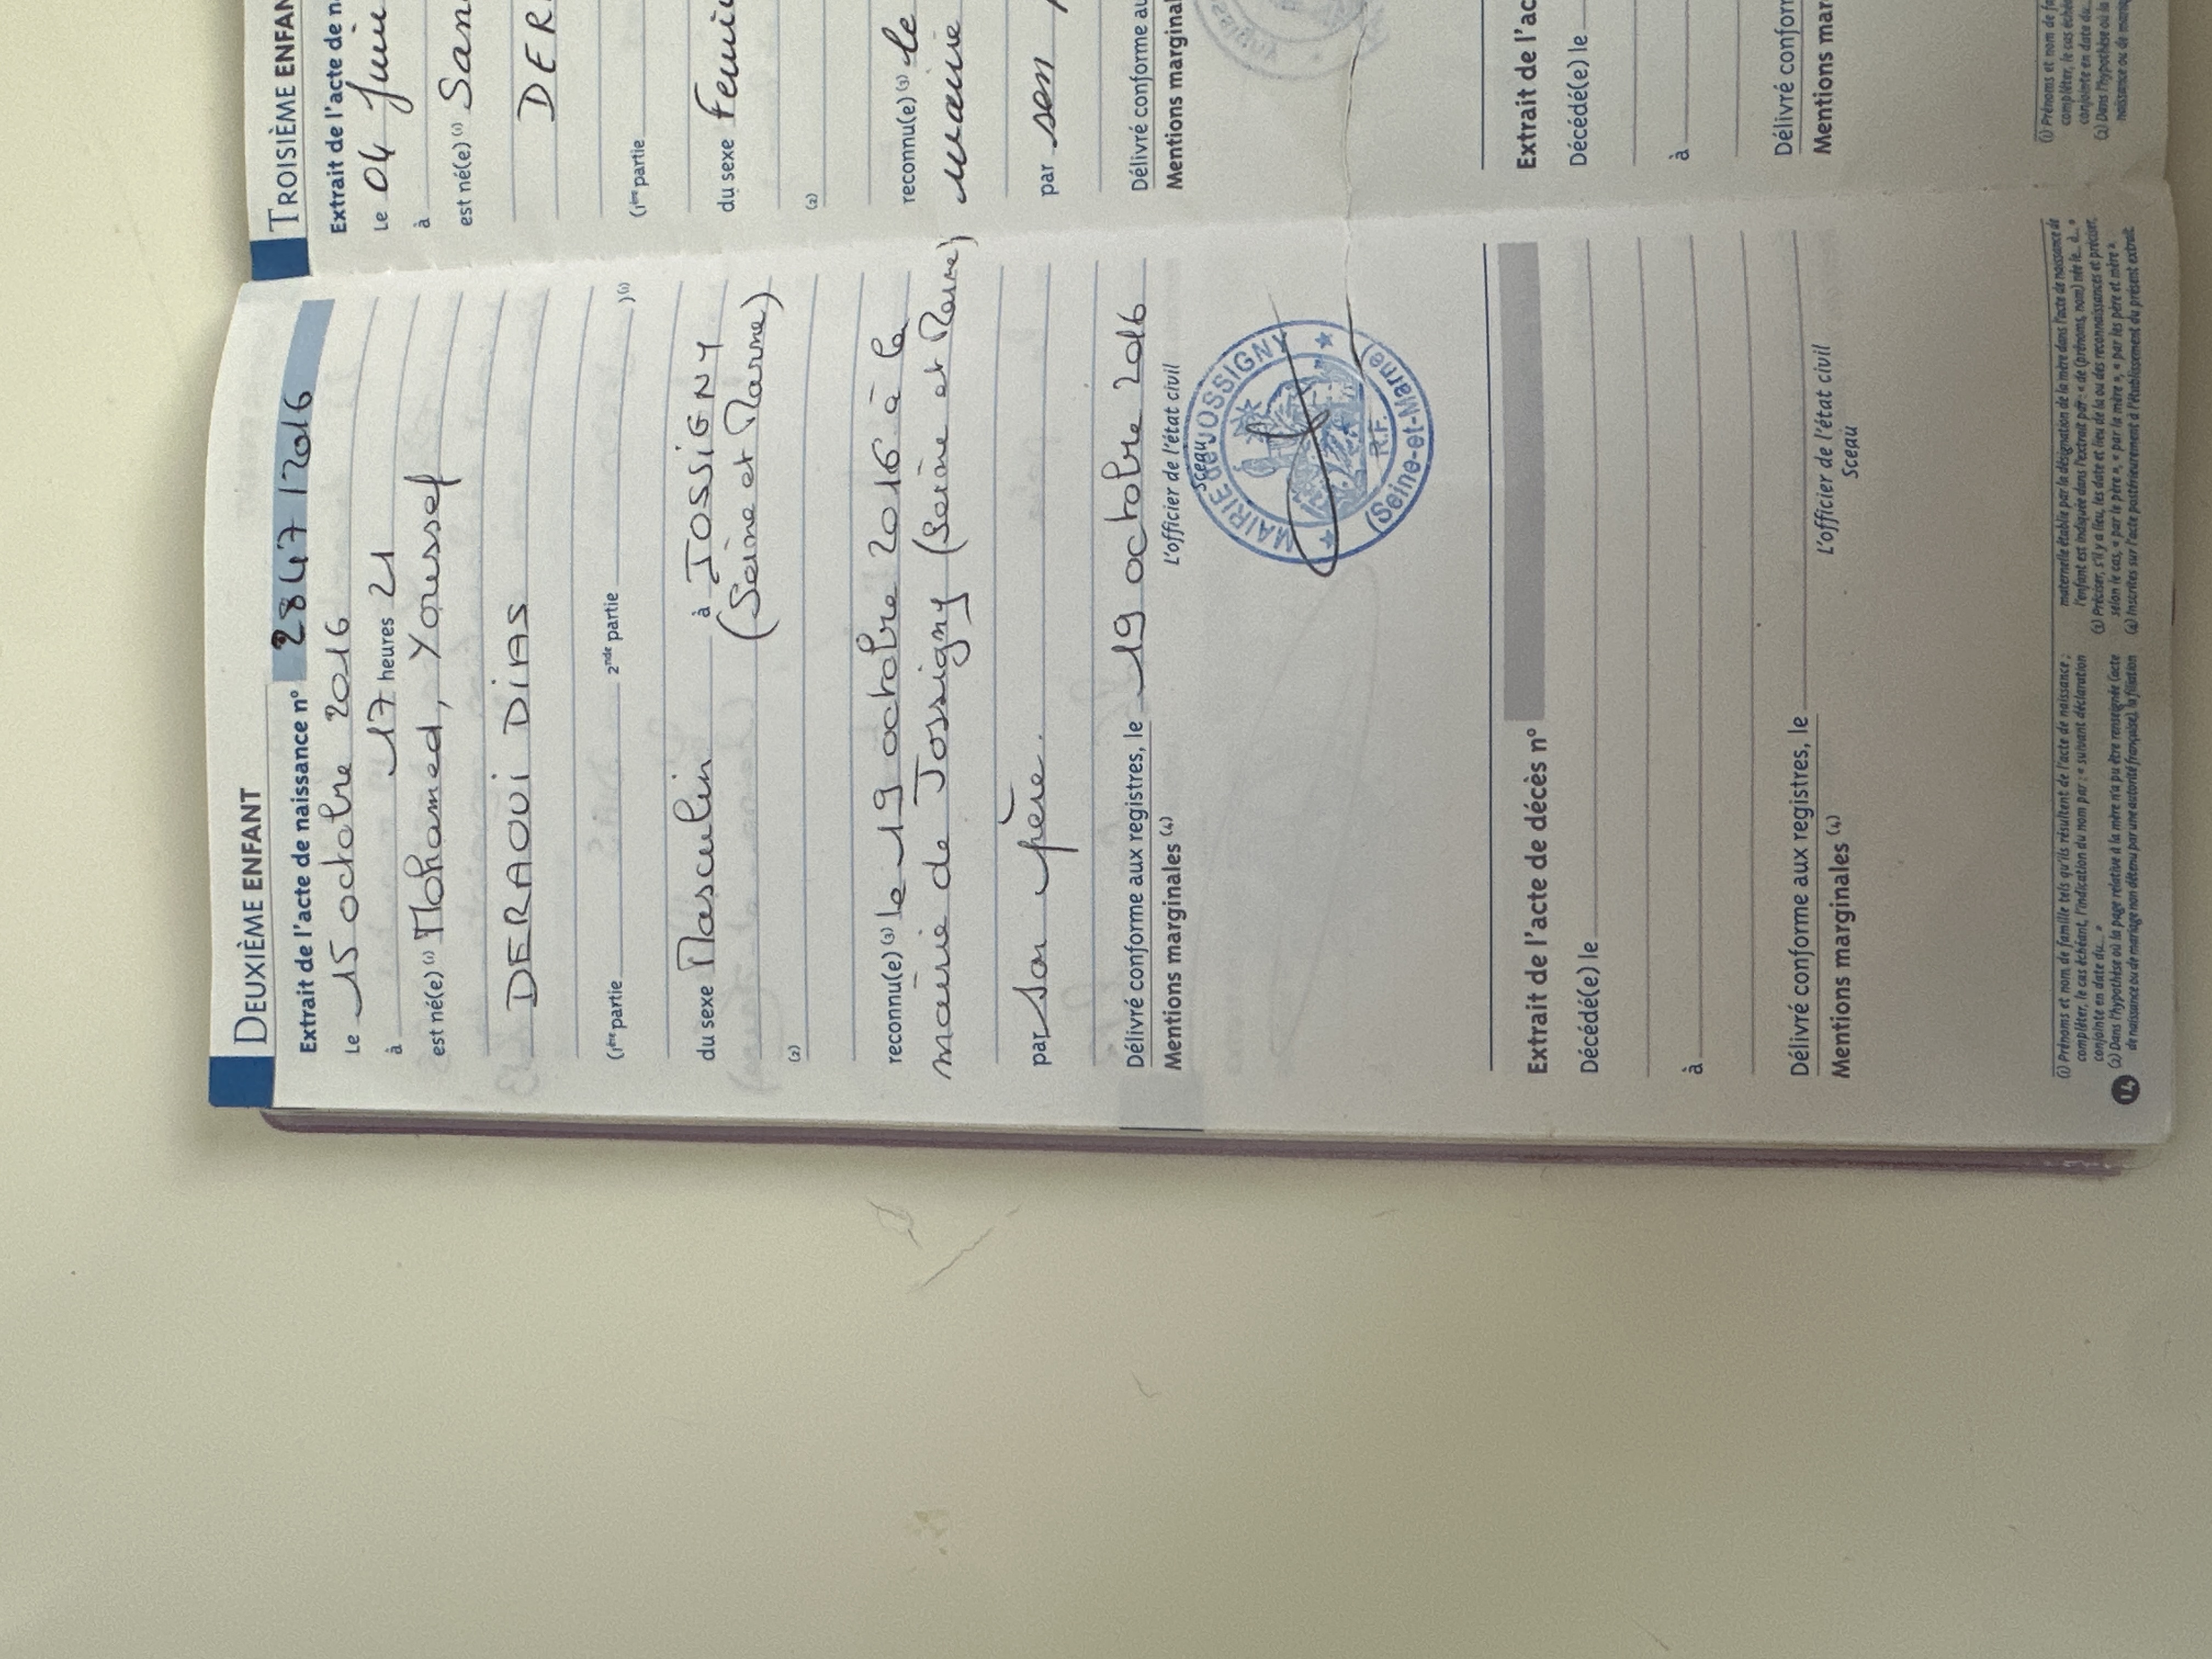 DEUXIÈME ENFANT
Extrait de l'acte de naissance n° 2847/2016
Le 15 octobre 2016
à 17 heures 21
est né(e) (1) Mohamed, Youssef
DERAOUI DIAS
(1ère partie 2nde partie )(1)
du sexe Masculin à JOSSIGNY
(Seine et Marne)
(2)
reconnu(e) (3) le 19 octobre 2016 à la
mairie de Jossigny (Seine et Marne)
par son père.
Délivré conforme aux registres, le 19 octobre 2016
Mentions marginales (4) L'officier de l'état civil
Sceau
MAIRIE de JOSSIGNY
R.F.
(Seine-et-Marne)
Extrait de l'acte de décès n°
Décédé(e) le
à
Délivré conforme aux registres, le
Mentions marginales (4) L'officier de l'état civil
Sceau
(1) Prénoms et nom de famille tels qu'ils résultent de l'acte de naissance ;
compléter, le cas échéant, l'indication du nom par : « suivant déclaration
conjointe en date du... »
(2) Dans l'hypothèse où la page relative à la mère n'a pu être renseignée (acte
de naissance ou de mariage non détenu par une autorité française), la filiation
maternelle établie par la désignation de la mère dans l'acte de naissance de
l'enfant est indiquée dans l'extrait par : « de (prénoms, nom) née le... à... »
(3) Préciser, s'il y a lieu, les date et lieu de la ou des reconnaissances et préciser,
selon le cas, « par le père », « par la mère », « par les père et mère »
(4) Inscrites sur l'acte postérieurement à l'établissement du présent extrait
14
TROISIÈME ENFAN
Extrait de l'acte de n
Le 04 Juin
à
est né(e) (1) San
DER
(1ère partie
du sexe Fémi
(2)
reconnu(e) (3) le
mairie
par son
Délivré conforme au
Mentions marginal
Extrait de l'ac
Décédé(e) le
à
Délivré confor
Mentions mar
(1) Prénoms et nom de fa
compléter, le cas éché
conjointe en date du...
(2) Dans l'hypothèse où la
naissance ou de mariag